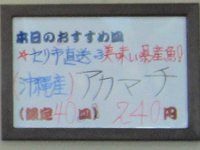 本日のおすすめ皿
★セリ市直送の美味い県産魚!!
(沖縄産)アカマチ
(限定40皿) 240円